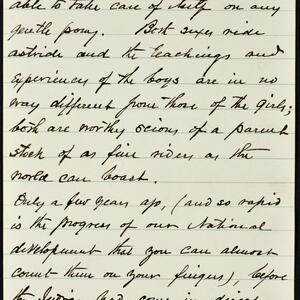 able to take care of itself on any
gentle pony. Both sexes ride
astride and the teachings and
experiences of the boys are in no
way different from those of the girls;
both are worthy scions of a parent
stock of as fine riders as the
world can boast.
Only a few years ago, (and so rapid
is the progress of our National
development that you can almost
count them on your fingers), before
the had come in direct